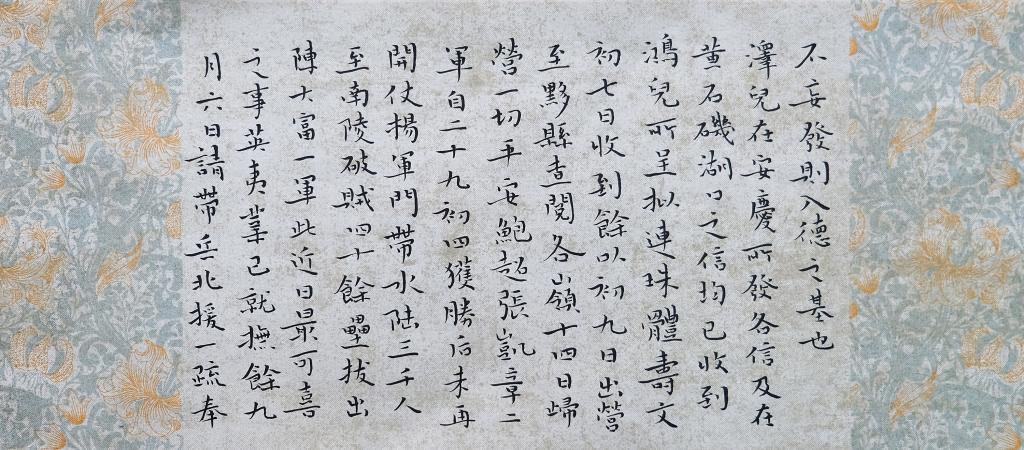 不妄發則入德之基也
澤兒在安慶所發各信及在
黄石磯湖口之信均已收到
鴻兒所呈拟連珠體壽文
初七日收到餘以初九日出營
至黟縣查閱各山嶺十四日歸
營一切平安鮑超張凱章二
軍自二十九初四獲勝后未再
開仗揚軍門帶水陸三千人
至南陵破賊四十餘壘拔出
陣大富一軍此近日最可喜
之事英夷業已就撫餘九
月六日請帶兵北援一疏奉